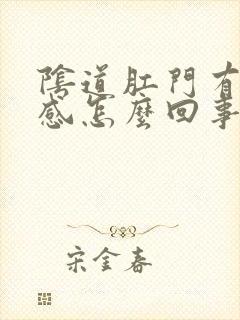 陰道肛門有
感怎麼回事
宋金春